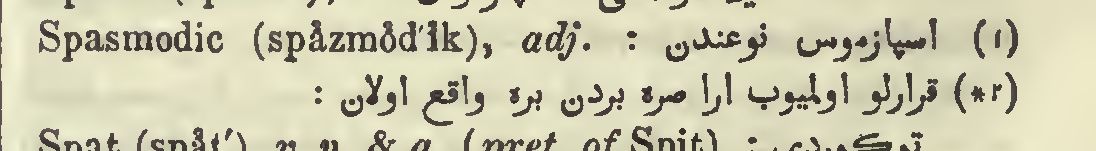 Spasmodic (spåzmŏd′ĭk), adj. : (١) اسپازموس نوعندن
(٢*) قرارلو اولمیوب ارا صره بردن بره واقع اولان :
Spat (spåt′), v. n. & a. (pret. of Spit) : توكوردی